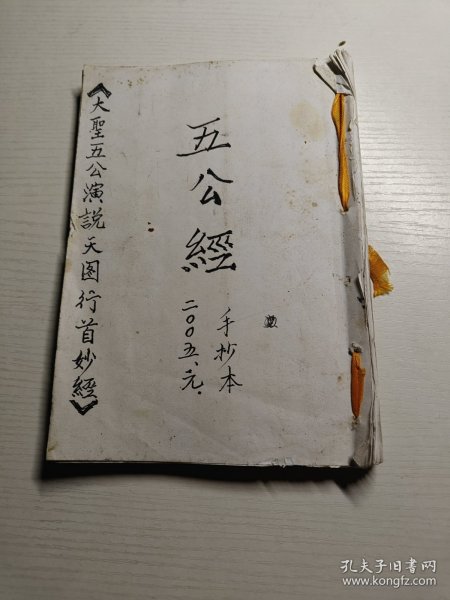 五公經
手抄本
二〇〇五、元.
《大聖五公演説天图行首妙經》
孔夫子旧书网
www.kongfz.com